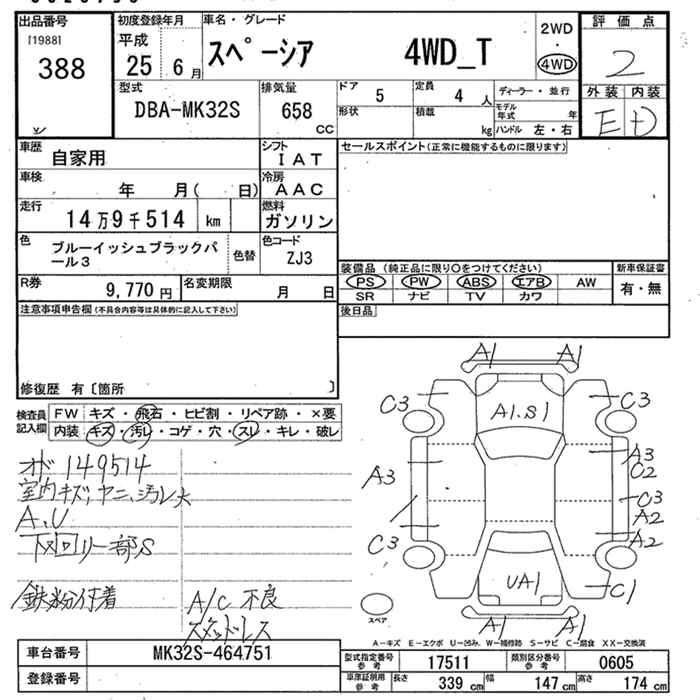 出品番号
[1988]
388
初度登録年月
平成
25 6月
車名・グレード
スペーシア 4WD_T
2WD
・
4WD
評価点
2
外装 内装
E D
型式
DBA-MK32S
排気量
658
CC
ドア
5
定員
4 人
ディーラー・並行
形状
積載
kg
モデル年式 年
ハンドル 左・右
車歴
自家用
シフト
IAT
車検
年 月( 日)
冷房
AAC
走行
14万9千514 km
燃料
ガソリン
色
ブルーイッシュブラックパ
ール3
色替
色コード
ZJ3
R券
9,770円
名変期限
月 日
セールスポイント(正常に機能するものに限ります)
装備品 (純正品に限り〇をつけてください)
PS PW ABS エアB AW
SR ナビ TV カワ
新車保証書
有・無
後日品
注意事項申告欄(不具合内容等は具体的に記入して下さい)
修復歴 有〔箇所 〕
検査員
記入欄
FW キズ・飛石・ヒビ割・リペア跡・×要
内装 キズ・汚レ・コゲ・穴・スレ・キレ・破レ
オド 149514
室内キズ、ヤニ、汚レ大
A、U
下回り一部S
鉄粉付着
A/C 不良
スタッドレス
A1 A1
C3 C3
A1.S1
A3 A3
C2
C3
A2
A2
C3
C1
UA1
A1 A1
スペア
A－キズ E－エクボ U－凹み、W－補修跡 S－サビ C－腐食 XX－交換済
車台番号 MK32S-464751
登録番号
型式指定番号
参考
17511
類別区分番号
参考
0605
車庫証明用
参考
長さ 339 cm
幅 147 cm
高さ 174 cm